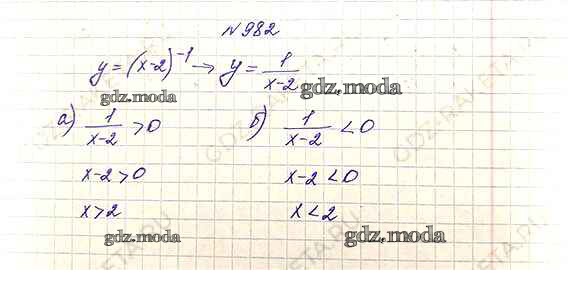 №982
y = (x-2)⁻¹ → y = 1/(x-2)
gdz.moda gdz.moda
а) 1/(x-2) > 0 б) 1/(x-2) < 0
x-2 > 0 x-2 < 0
x > 2 x < 2
gdz.moda gdz.moda
GDZ-RAKETA.RU